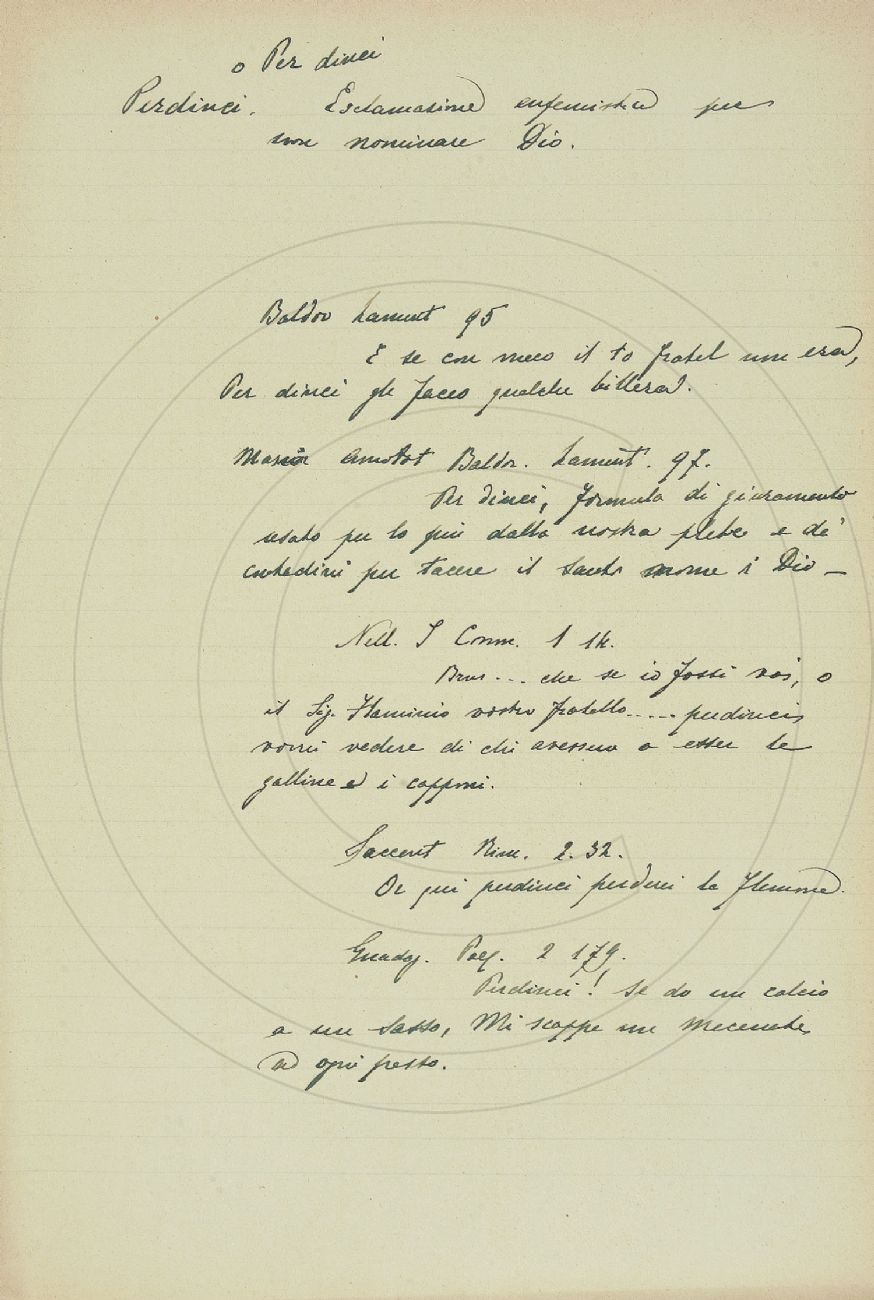 o Per dinci
Perdinci. Esclamazione eufemistica per
non nominare Dio.
Baldov Lament 95
E se con meco il to fratel non era,
Per dinci gli faceo qualche billera.
Marin annotat Baldov. Lament. 97.
Per dinci, formula di giuramento
usato per lo più dalla nostra plebe e de'
contadini per tacere il santo nome i Dio —
Nell. I Comm. 1 14.
Brus... che se io fossi voi, o
il Sig. Flaminio vostro fratello..... perdinci,
vorrei vedere di chi avessero a esser le
galline e i capponi.
Saccent Rim. 2. 32.
Or qui perdinci perderei la flemma.
Guadag. Poes. 2 179.
Perdinci! Se do un calcio
a un sasso, Mi scappa un mecenate
ad ogni passo.